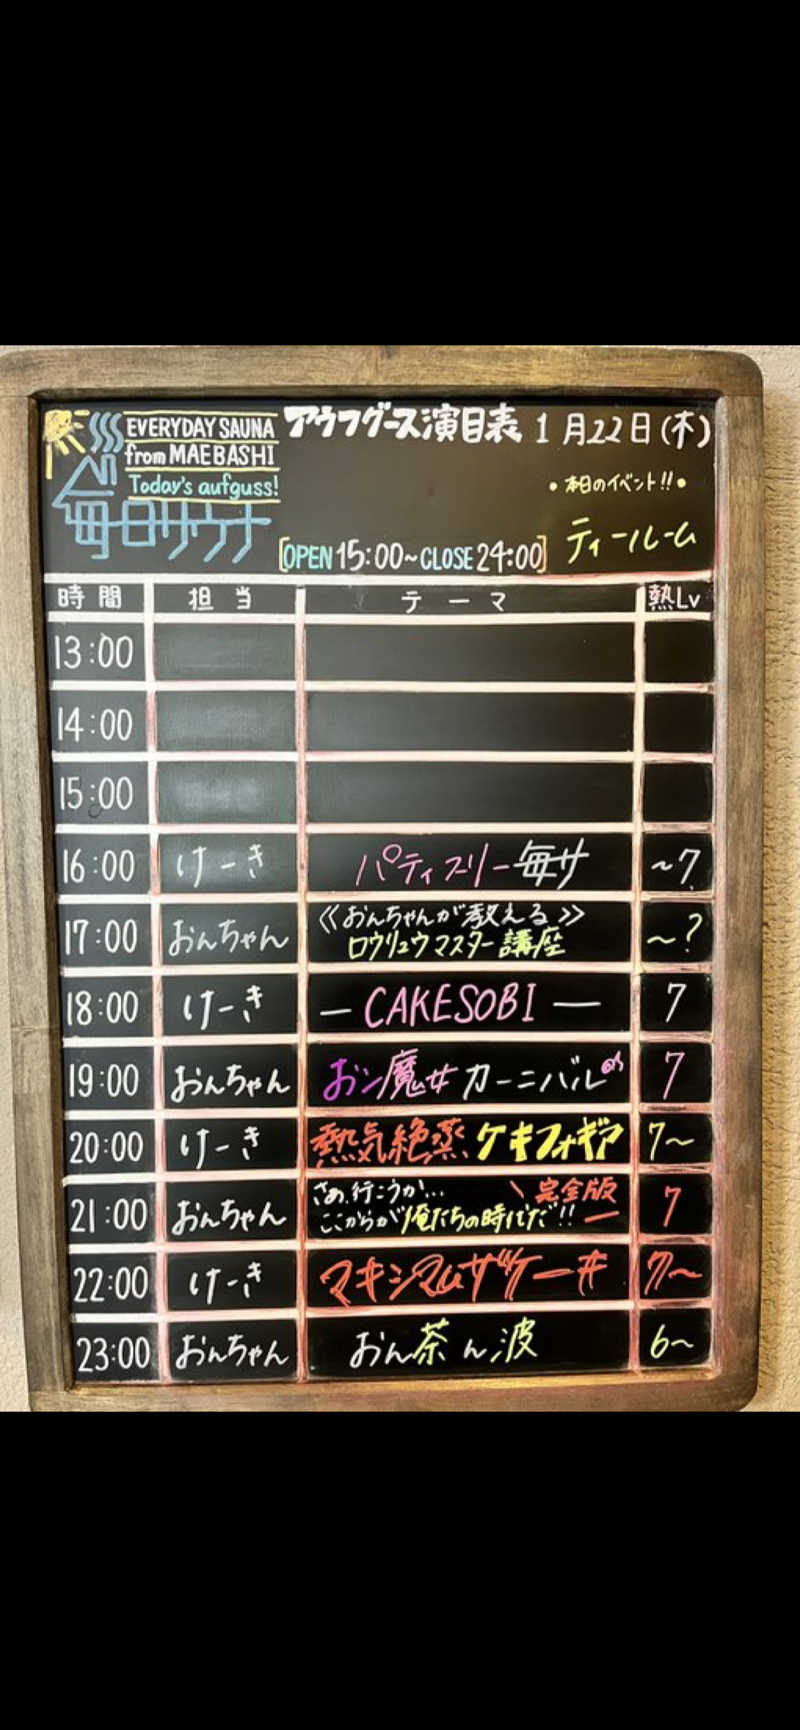 EVERYDAY SAUNA
from MAEBASHI
Today's aufguss!
毎日サウナ
アウフグース演目表 1月22日(木)
•本日のイベント!!•
ティールーム
[OPEN 15:00~CLOSE 24:00]
時間 担当 テーマ 熱Lv
13:00
14:00
15:00
16:00 けーき パティスリー毎サ ~7
17:00 おんちゃん 《おんちゃんが教える》
ロウリュウマスター講座 ~?
18:00 けーき —CAKESOBI— 7
19:00 おんちゃん おン魔女カーニバル 7
20:00 けーき 熱気絶蒸ケキフォギア 7~
21:00 おんちゃん さあ、行こうか… \完全版
ここからが俺たちの時代だ!!— 7
22:00 けーき マキシマムザケーキ 7~
23:00 おんちゃん おん茶ん波 6~